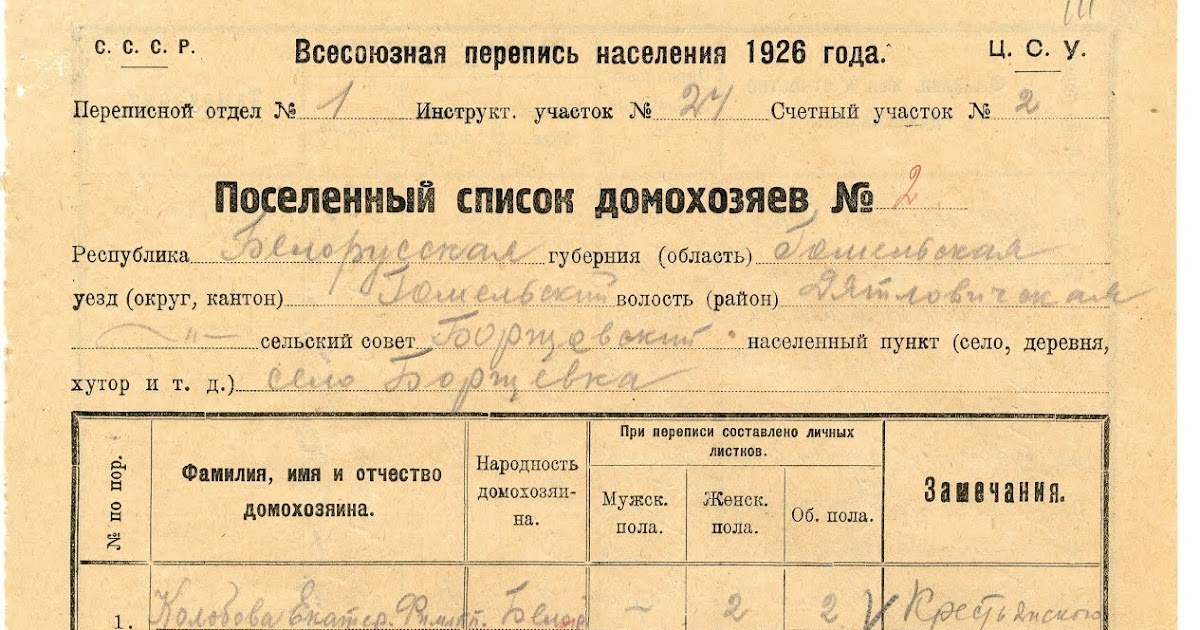 С. С. С. Р. Всесоюзная перепись населения 1926 года. Ц. С. У.
Переписной отдел № 1 Инструкт. участок № 24 Счетный участок № 2
Поселенный список домохозяев № 2
Республика Белорусская губерния (область) Гомельская
уезд (округ, кантон) Гомельский волость (район) Дятловичская
—"— сельский совет Борщевский населенный пункт (село, деревня,
хутор и т. д.) село Борщевка
№ по пор.
Фамилия, имя и отчество
домохозяина.
Народность
домохозяи-
на.
При переписи составлено личных
листков.
Мужск.
пола.
Женск.
пола.
Об. пола.
Замечания.
1. Колобова Екатер. Бело - 2 2 V Крестьянского